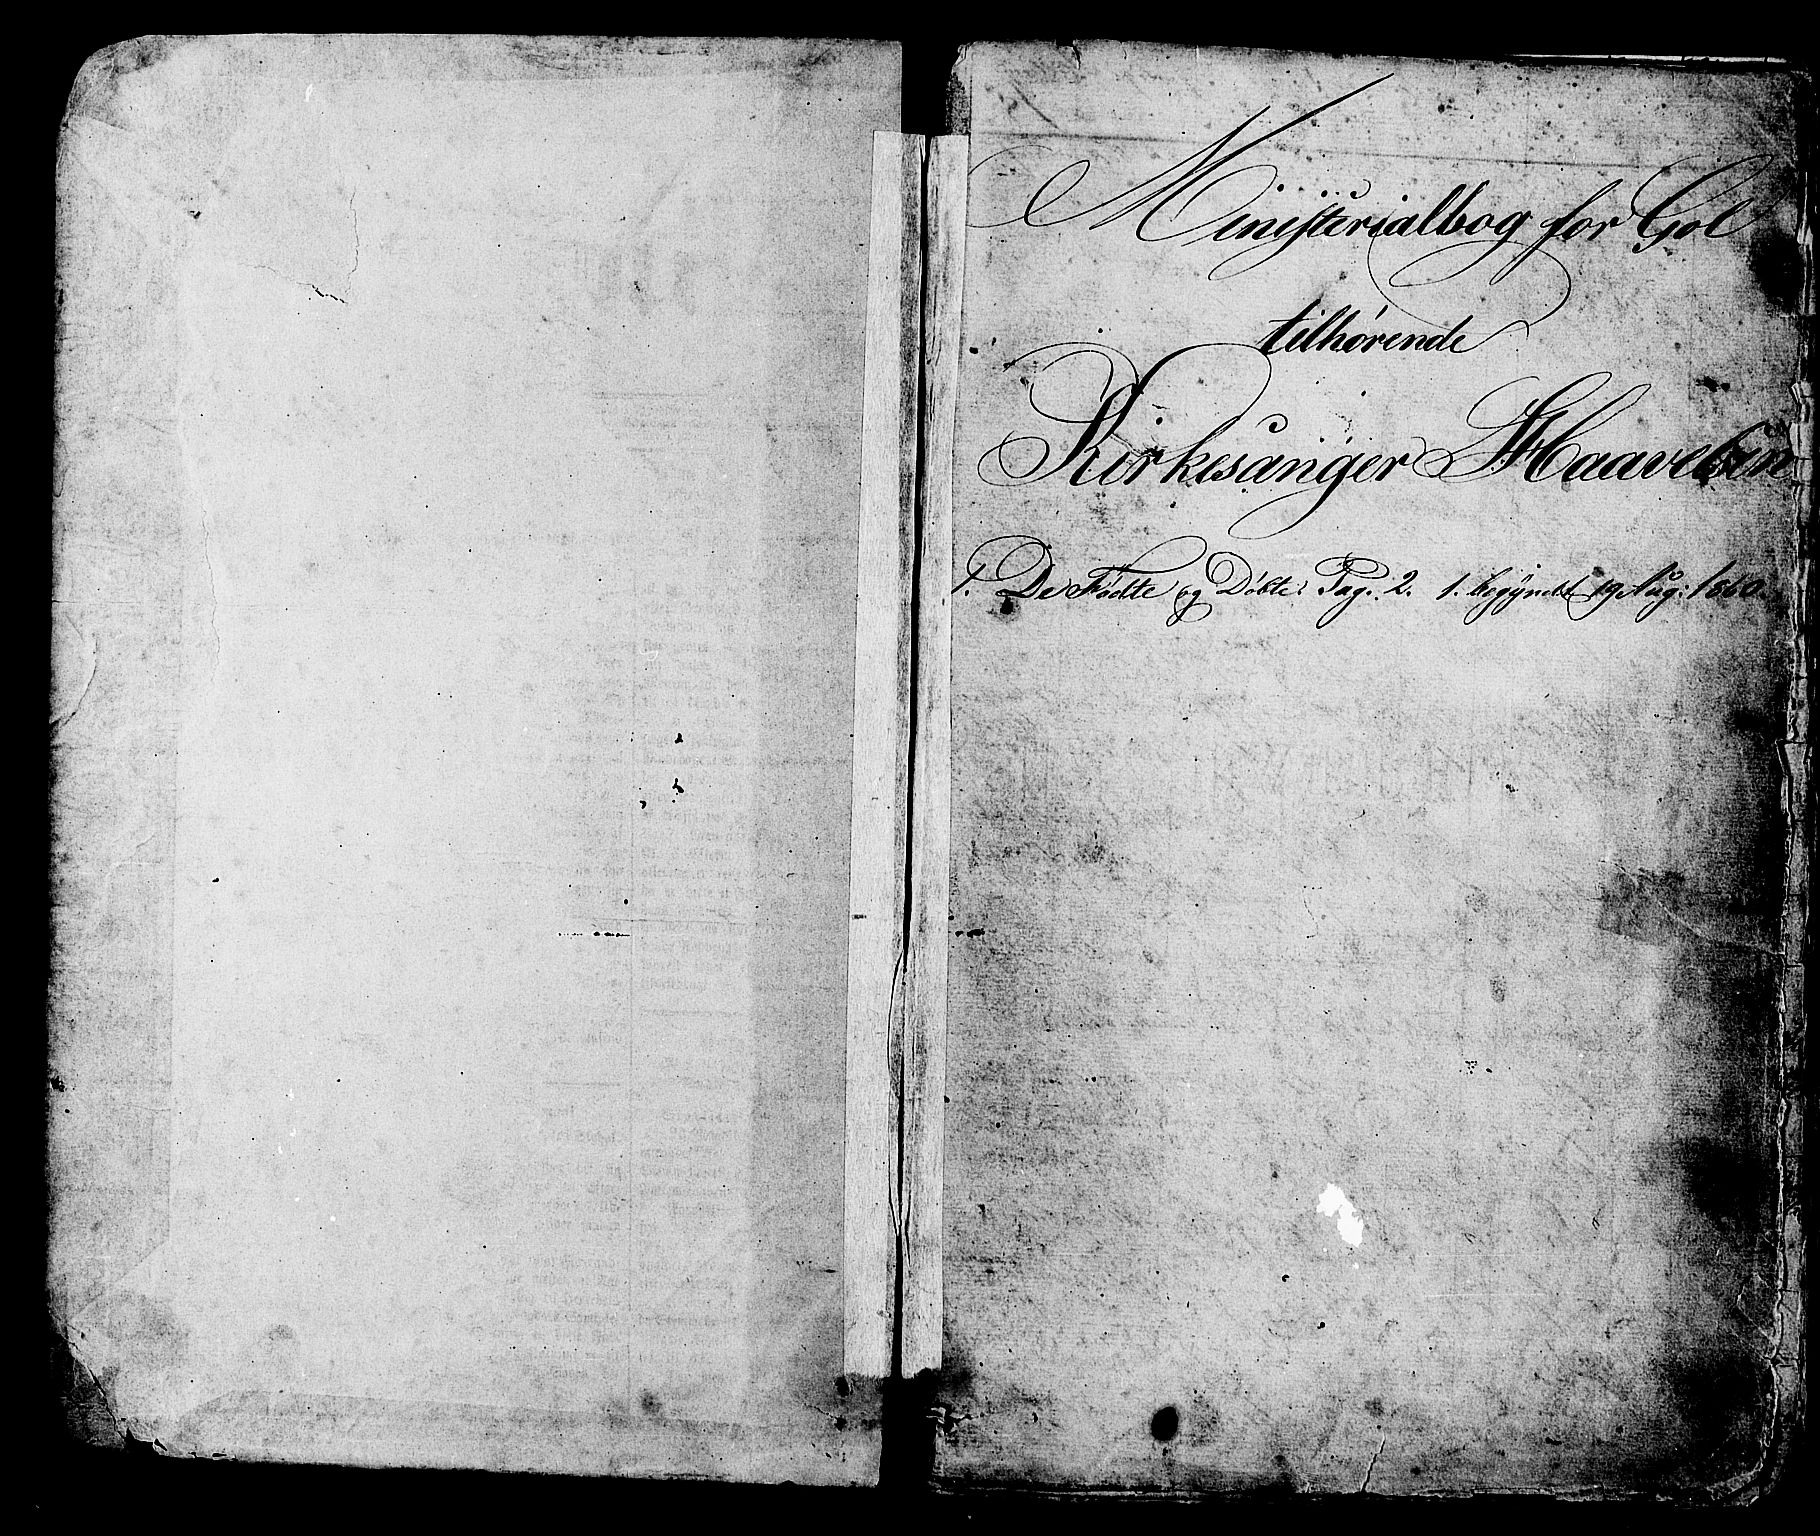 Ministerialbog for Gol
tilhørende
Kirkesanger Haavelsen
1. De Fødte og Døbte: Pag. 2. 1. begyndt 19 Aug: 1860.